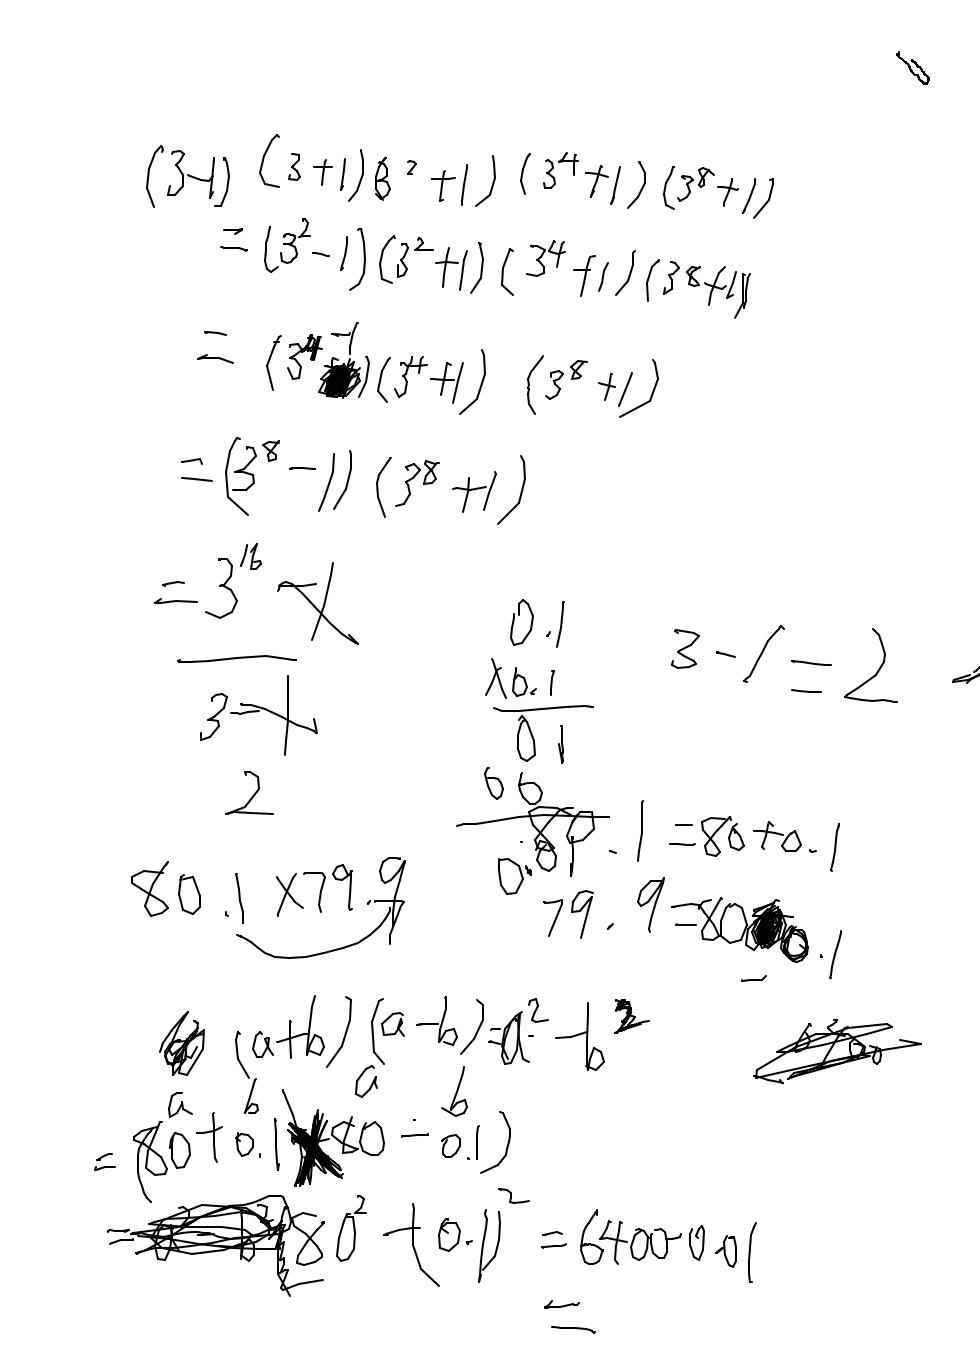 (3-1) (3+1)(3²+1) (3⁴+1) (3⁸+1)
= (3²-1)(3²+1) (3⁴+1) (3⁸+1)
= (3⁴-1)(3⁴+1) (3⁸+1)
= (3⁸-1) (3⁸+1)
= 3¹⁶ - 1
3-1
2
0.1
×0.1
01
00
0.01
3-1=2
80.1=80+0.1
79.9=80-0.1
80.1×79.9
(a+b)(a-b)=a²-b²
a b a b
=(80+0.1)(80-0.1)
=80²-(0.1)²=6400-0.01
=